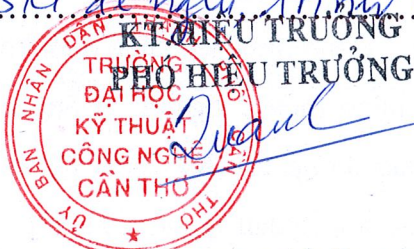 KT.HIỆU TRƯỞNG
PHÓ HIỆU TRƯỞNG
ỦY BAN NHÂN DÂN THÀNH PHỐ CẦN THƠ
TRƯỜNG
ĐẠI HỌC
KỸ THUẬT
CÔNG NGHỆ
CẦN THƠ